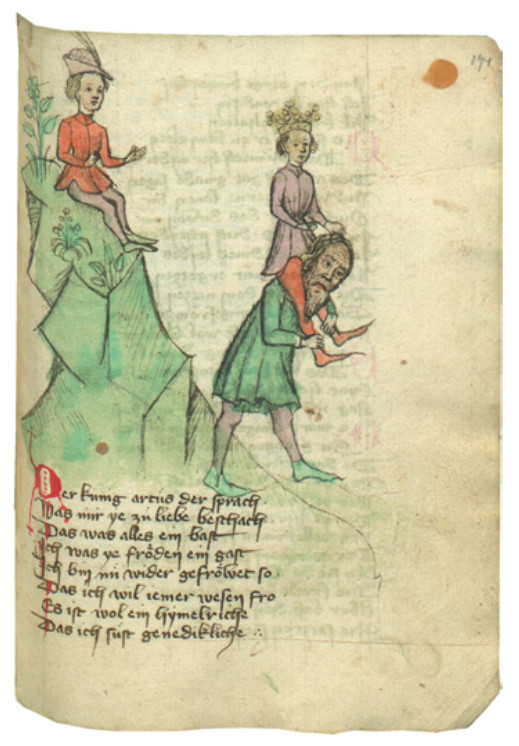 191
Der kung artus der sprach
Was mir ye zu liebe beschach
Das was alles ein bast
Ich was ye fröden ein gast
Ich bin nu wider gefröwet so
Das ich wil iemer wesen fro
Es ist wol ein hymelriche
Das ich sust genedikliche